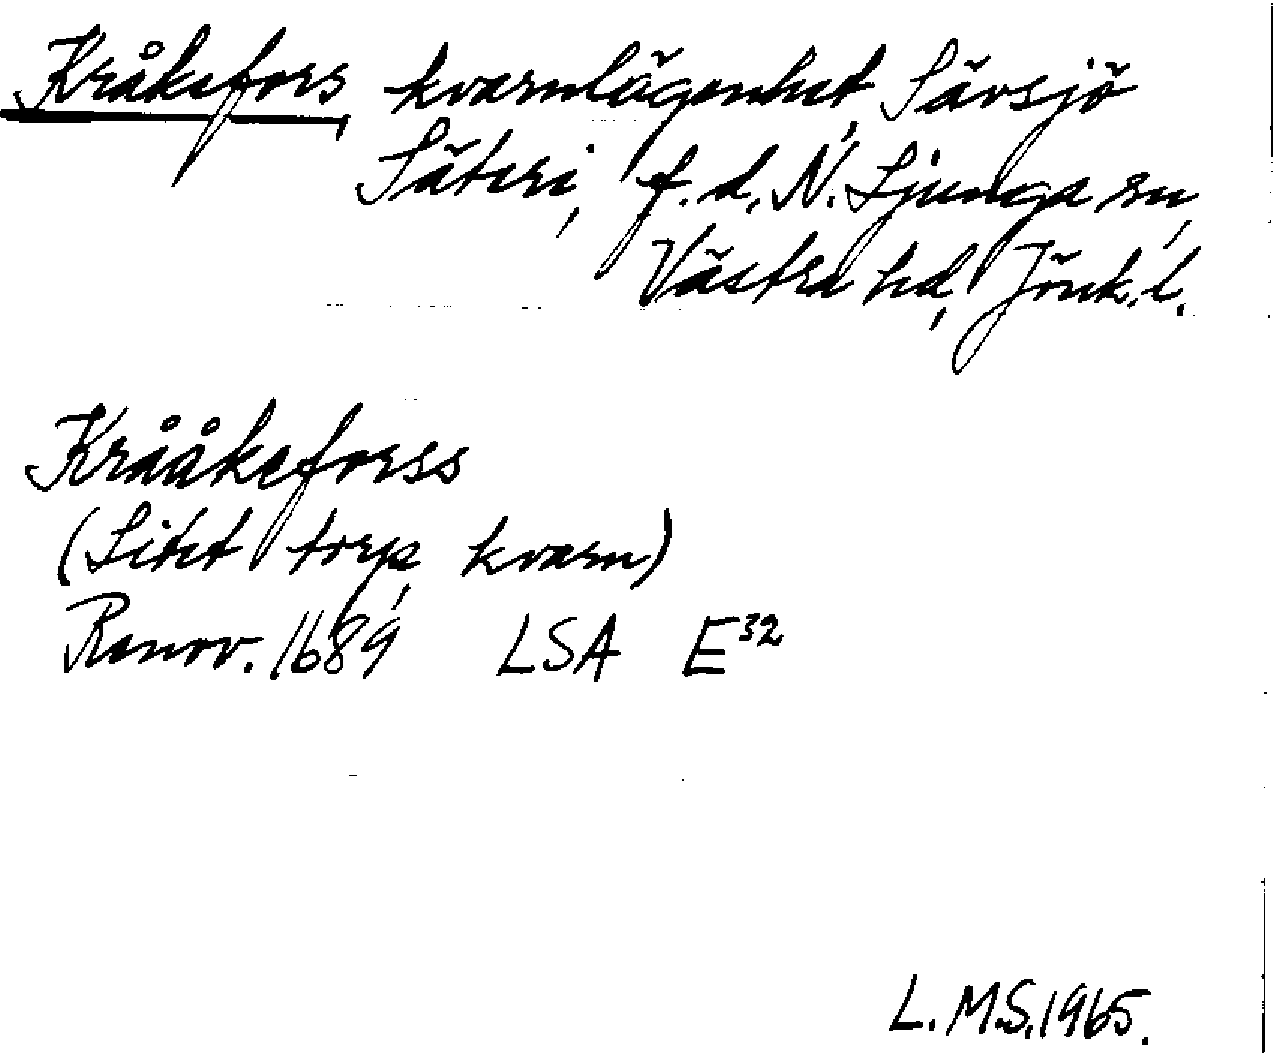 Kråkefors, kvarnlägenhet, Sävsjö
Säteri, f.d. N. Ljunga sn,
Västra hd, Jönk. l.
Krååkeforss
(Litet torp, kvarn)
Renov. 1689 LSA E³²
L. M.S. 1965.